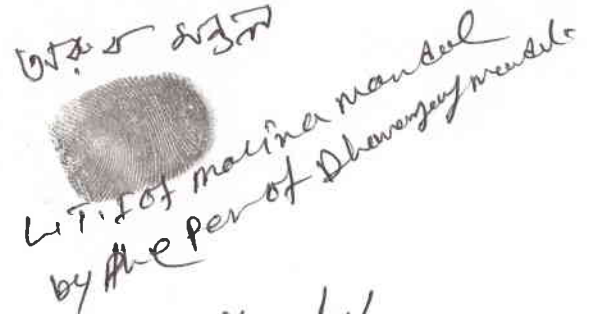 অরূপ মণ্ডল
L.T.I of Malina Mandal
by the Pen of Dhananjay Mandal.